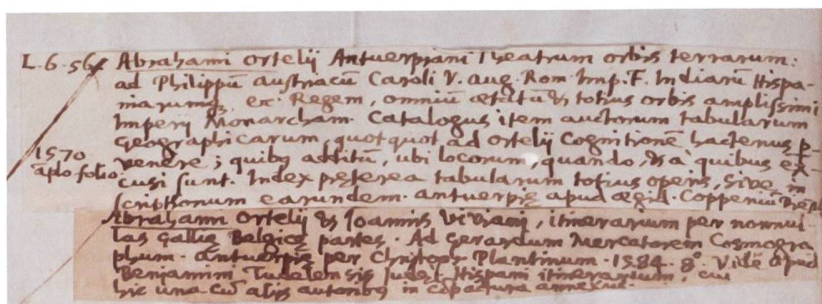 L. 6. 56 Abrahami Ortelij Antuerpiani Theatrum orbis terrarum:
ad Philippū austriacū Caroli V. aug. Rom. Imp. F. Indiarū Hispa-
niarumq, etc Regem, omniū ætatū & totius orbis amplissimi
Imperij Monarcham. Catalogus item auctorum tabularum
Geographicarum, quotquot ad Ortelij Cognitionē hactenus p-
1570 venere; quibq additū, ubi locorum, quando, & a quibus ex-
aplo folio. cusi sunt. Index pręterea tabularum totius operis, sive in
scriptionum earundem. antuerpię apud ægid. Coppeniū
Abrahami Ortelij & Ioannis Viviani, itinerarium per nonnul-
las Gallię Belgicę partes. Ad Gerardum Mercatorem Cosmogra
phum. antuerpię per Christoph Plantinum. 1584. 8°. Vide apud
Benjamim Tudelensis Judei Hispani itinerarium, cui
hic una cū alijs autoribq in copertura annexus.